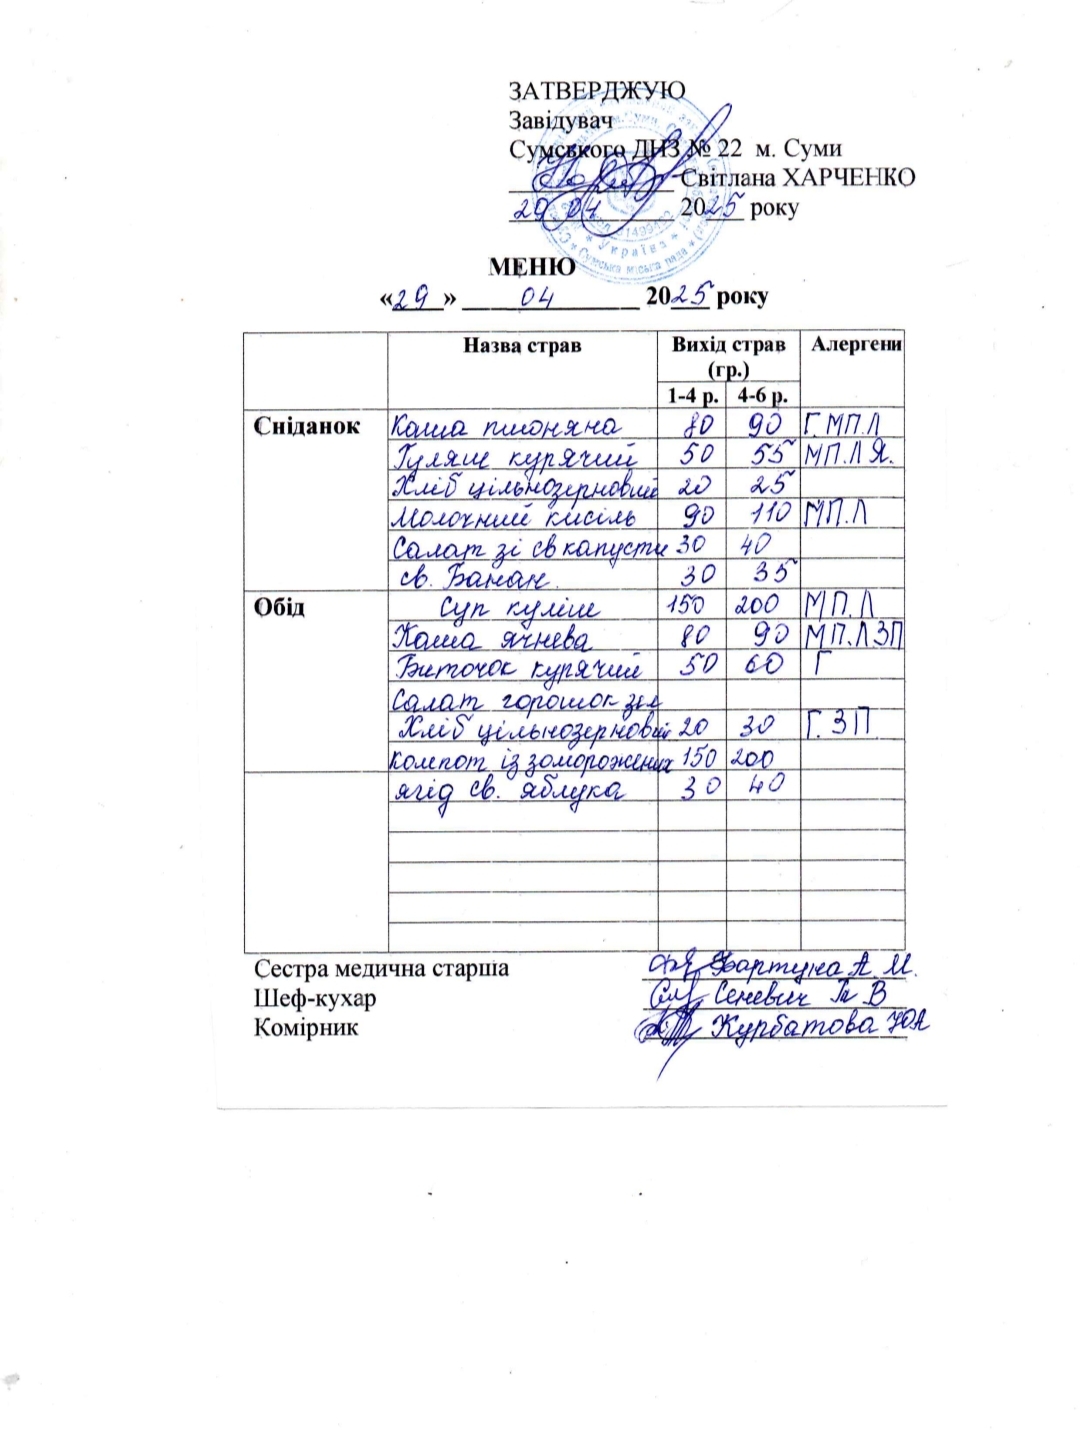 ЗАТВЕРДЖУЮ
Завідувач
Сумського ДНЗ № 22 м. Суми
Світлана ХАРЧЕНКО
29 04 2025 року
МЕНЮ
«29» 04 2025 року
Назва страв Вихід страв (гр.) Алергени
1-4 р. 4-6 р.
Сніданок Каша пшоняна 80 90 Г. МП. Л
Гуляш курячий 50 55 МП. Л Я.
Хліб цільнозерновий 20 25
Молочний кисіль 90 110 МП. Л
Салат зі св капусти 30 40
св. Банан. 30 35
Обід Суп куліш 150 200 МП. Л
Каша ячнева 80 90 МП. Л ЗП
Биточок курячий 50 60 Г
Салат горошок зел
Хліб цільнозерновий 20 30 Г. ЗП
компот із заморожених 150 200
ягід св. яблука 30 40
Сестра медична старша Фартуна А. М.
Шеф-кухар Сеневич Т В
Комірник Курбатова Ю А